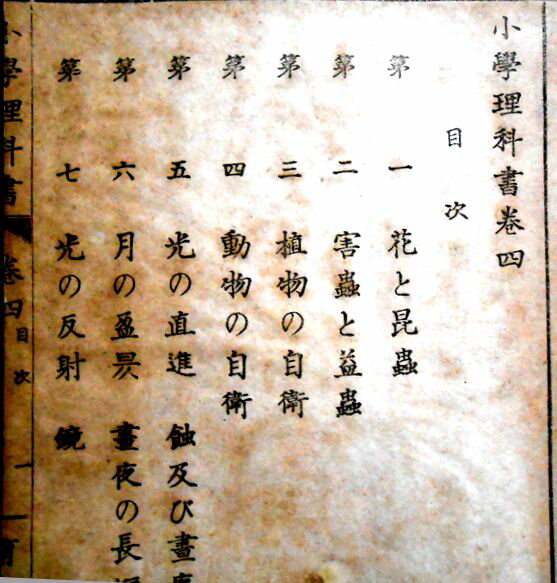 小學理科書卷四
目次
第一 花と昆蟲
第二 害蟲と益蟲
第三 植物の自衛
第四 動物の自衛
第五 光の直進 蝕及び晝夜
第六 月の盈昃 晝夜の長
第七 光の反射 鏡
小學理科書 卷四 目次 一